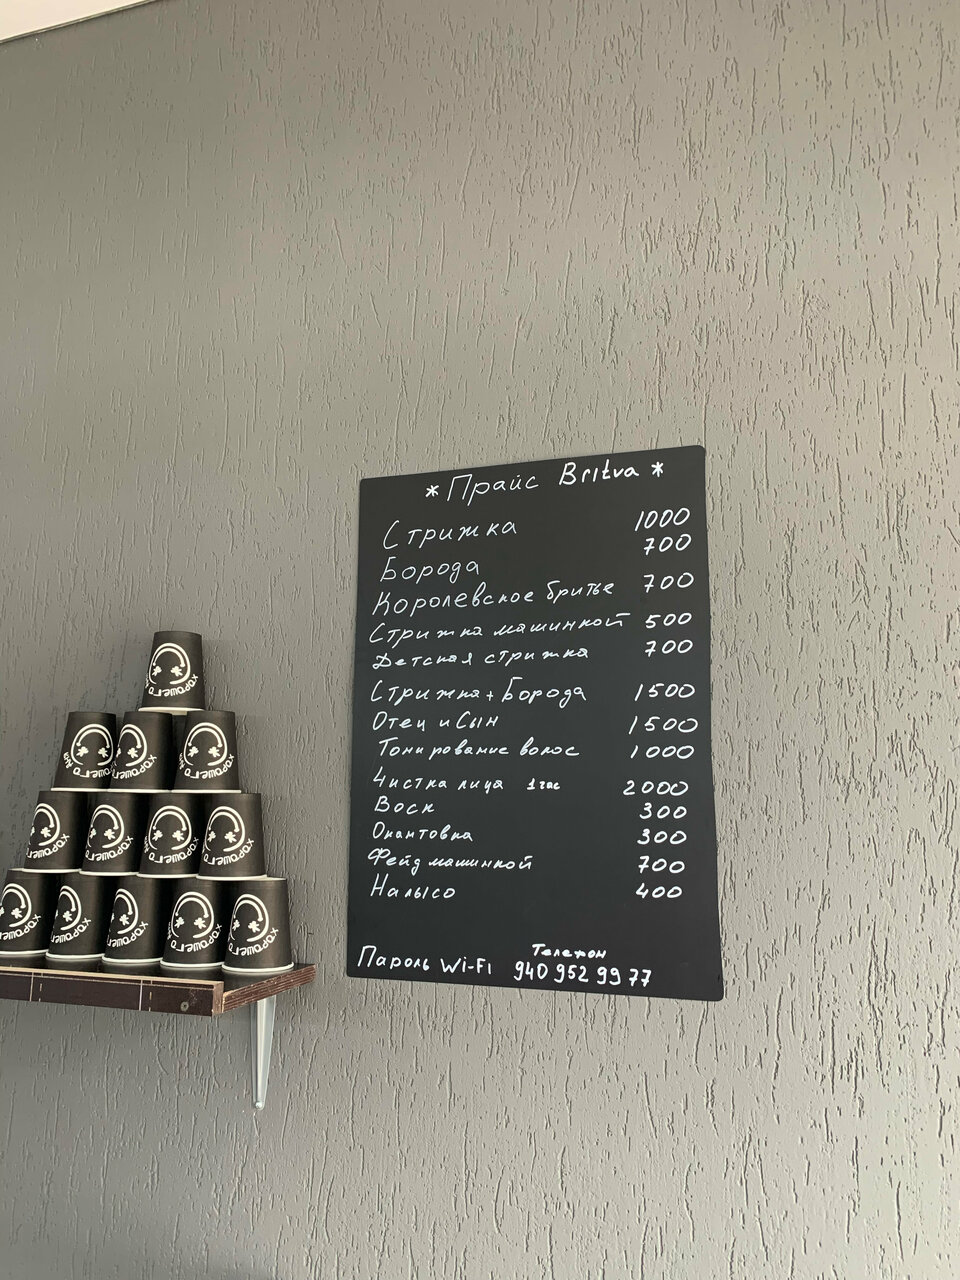 * Прайс Britva *
Стрижка 1000
Борода 700
Королевское бритье 700
Стрижка машинкой 500
Детская стрижка 700
Стрижка + Борода 1500
Отец и Сын 1500
Тонирование волос 1000
Чистка лица 1 час 2000
Воск 300
Окантовка 300
Фейд машинкой 700
Налысо 400
Телефон
Пароль Wi-Fi 940 952 99 77
хорошего
хорошего
хорошего
хорошего
хорошего
хорошего
хорошего
хорошего
хорошего
хорошего
хорошего